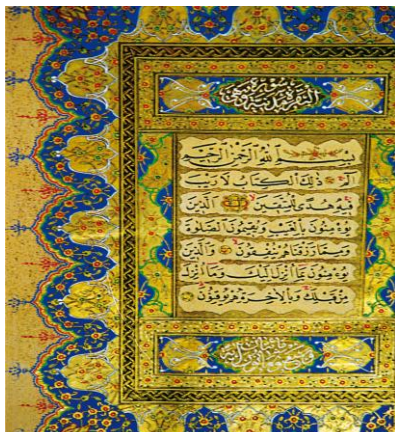 سورة البقرة مدنية وهي
بِسْمِ اللهِ الرَّحْمٰنِ الرَّحِيمِ
الٓمٓ ذٰلِكَ الْكِتَابُ لَا رَيْبَ
فِيهِ هُدًى لِلْمُتَّقِينَ الَّذِينَ
يُؤْمِنُونَ بِالْغَيْبِ وَيُقِيمُونَ الصَّلٰوةَ
وَمِمَّا رَزَقْنَاهُمْ يُنْفِقُونَ وَالَّذِينَ
يُؤْمِنُونَ بِمَا اُنْزِلَ اِلَيْكَ وَمَا اُنْزِلَ
مِنْ قَبْلِكَ وَبِالْاٰخِرَةِ هُمْ يُوقِنُونَ